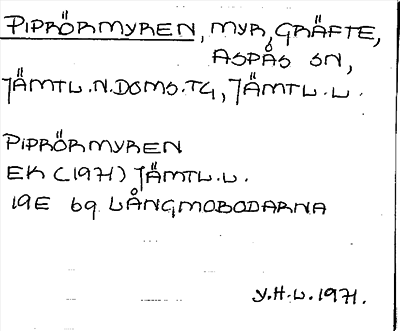 PIPRÖRMYREN, MYR, GRÄFTE,
ASPÅS SN,
JÄMTL.N.DOMS.TG, JÄMTL.L.
PIPRÖRMYREN
EK (1971) JÄMTL.L.
19E 6g LÅNGMOBODARNA
Y.H.L.1971.